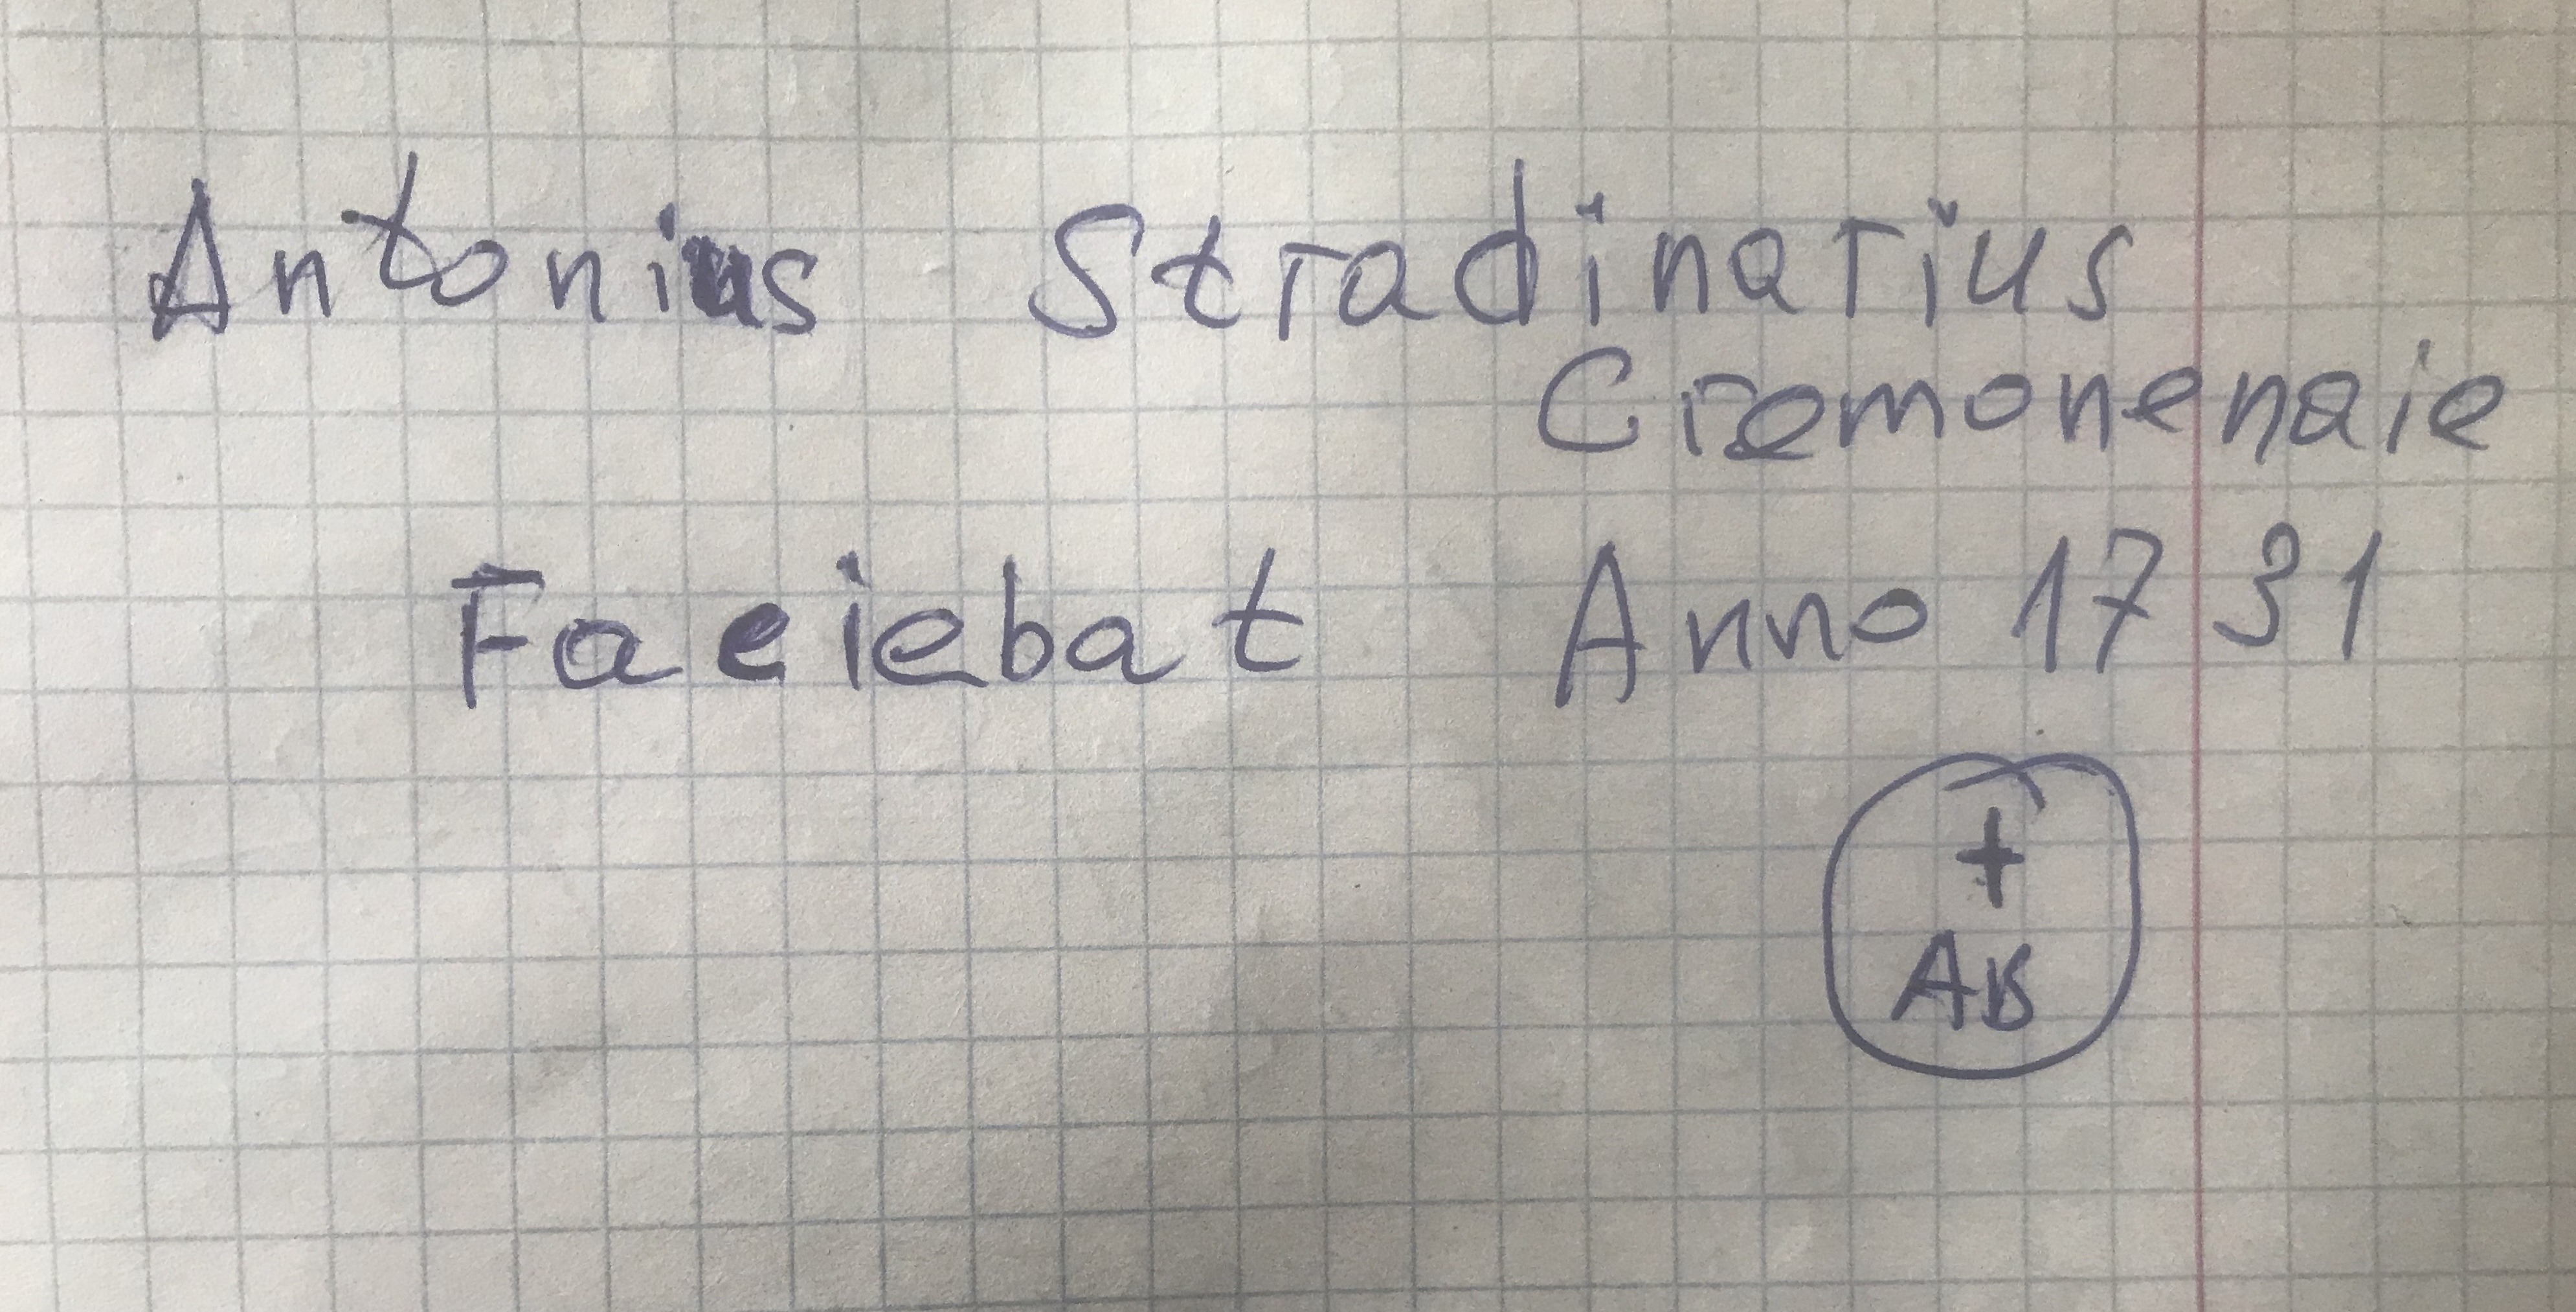 Antonius Stradinarius
Cremonenaie
Faeiebat Anno 1731
+
AB